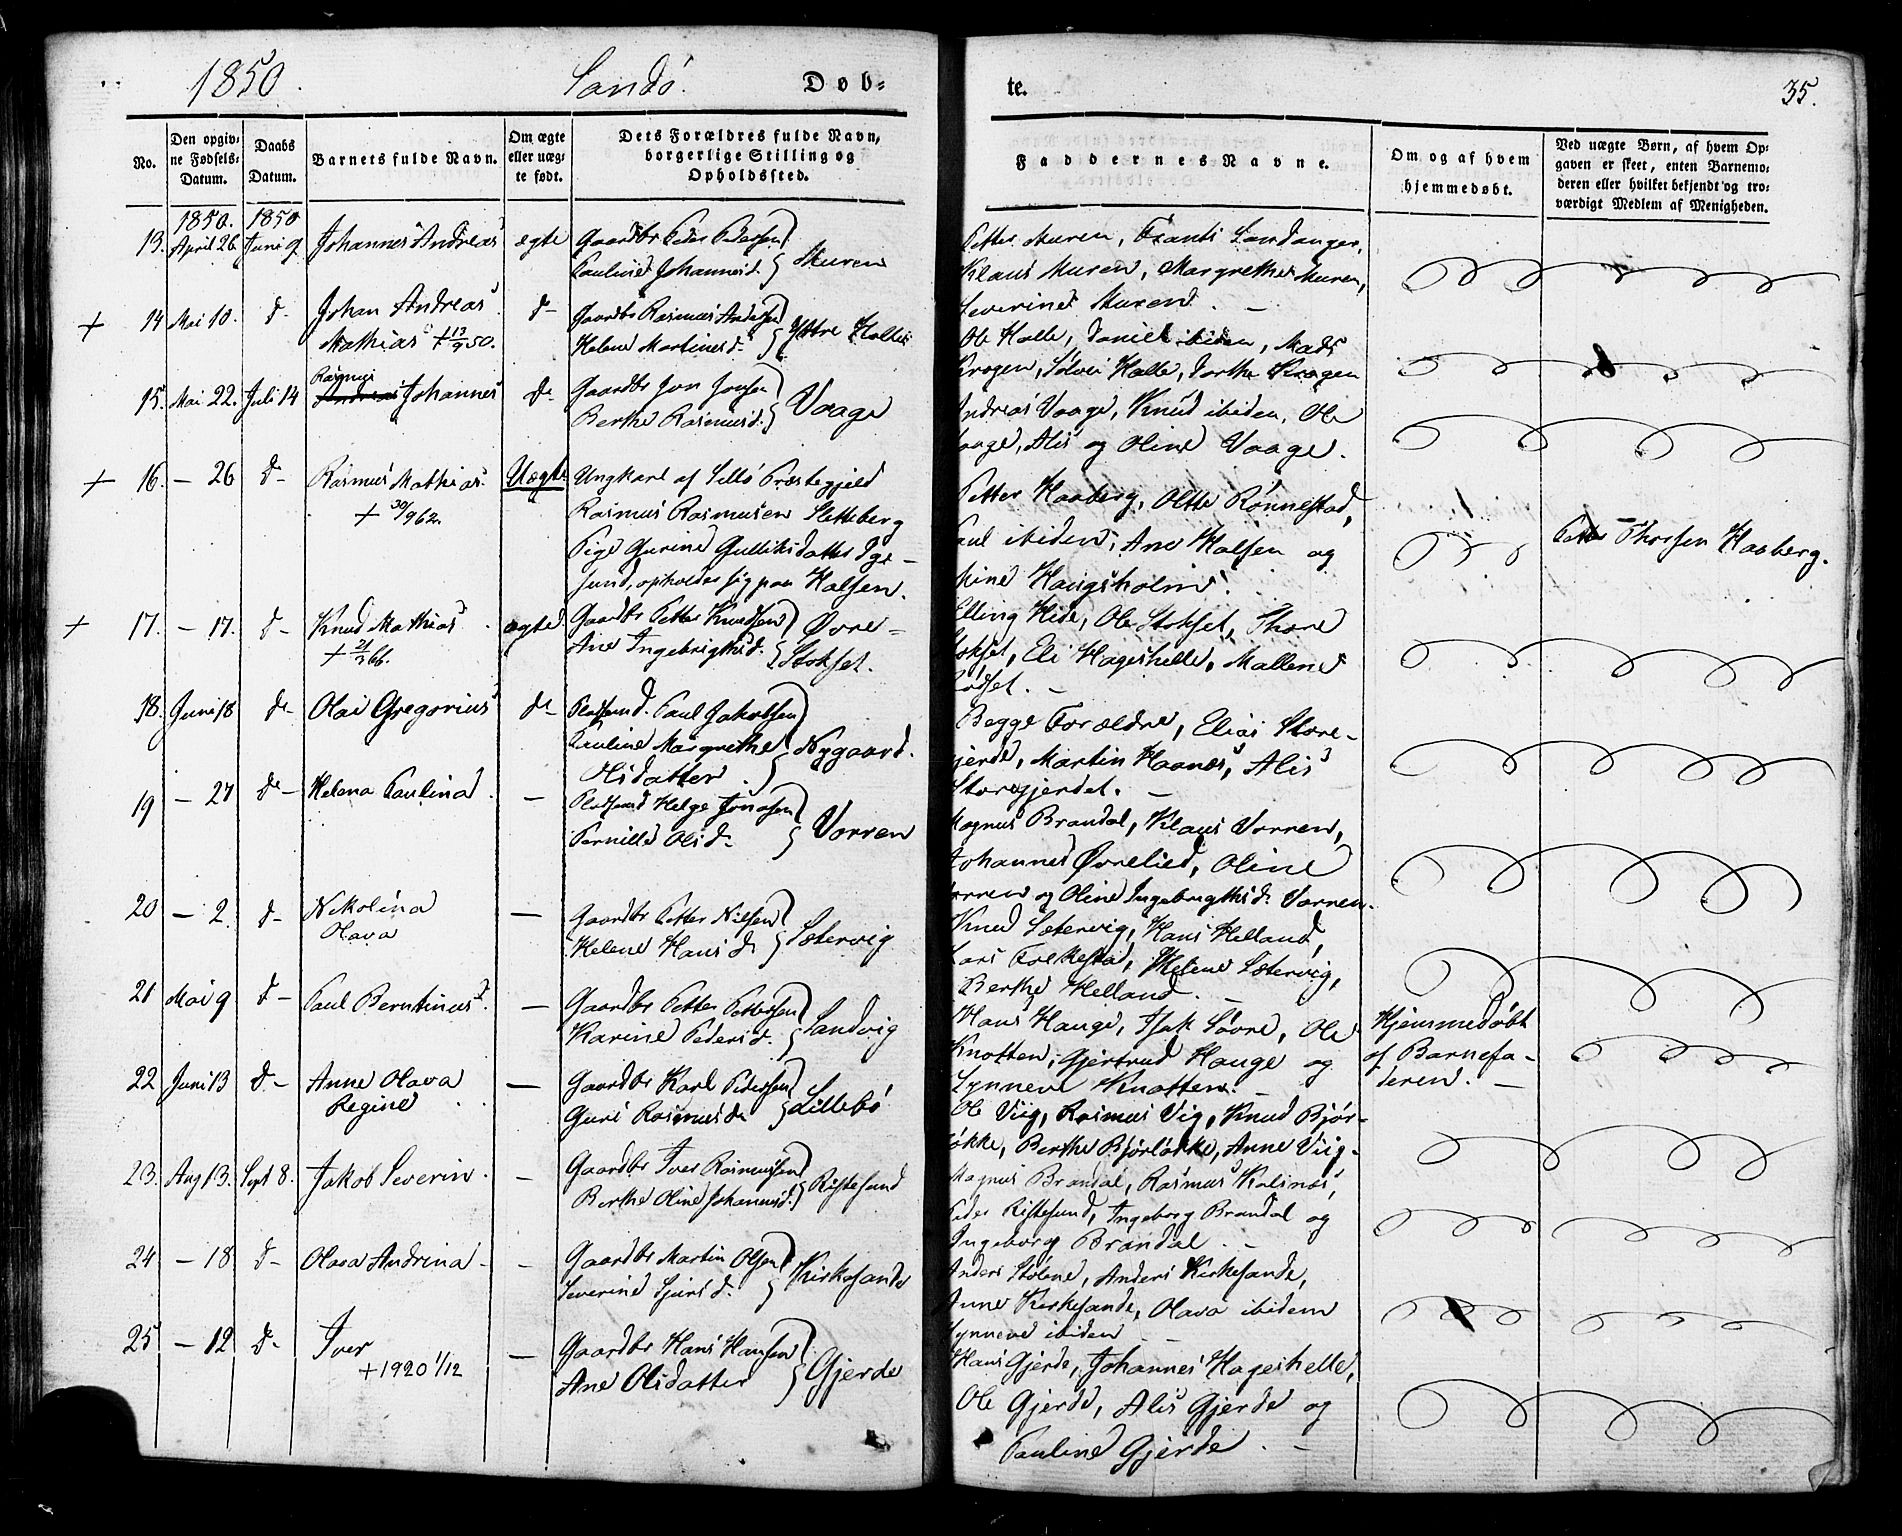 1850. Sandö. Døb-
No. Den opgivne Fødsels-Datum. Daabs Datum. Barnets fulde Navn. Om ægte eller uægte født. Dets Forældres fulde Navn, borgerlige Stilling og Opholdssted.
1850. 1850
13. April 26. Juni 9 Johannes Andreas ægte Gaardbr Peder Pedersen
Pauline Johannesd. } Muren
+ 14 Mai 10. d- Johan Andreas d- Gaardbr Rasmus Andersen
Mathias + 13/9 50. Helene Martinesd- } Yttre Halle
Rasmus
15. Mai 22. Juli 14 Andreas Johannes d- Gaardbr Jon Jonsen
Berthe Rasmusd. } Vaage
+ 16. - 26 d- Rasmus Mathias. Uægte Ungkarl af Sellö Præstegjeld
+ 30/9 62. Rasmus Rasmusen Sletteberg
Pige Gurine Gulliksdatter Ige-
sund, opholder sig paa Halsen.
+ 17. - 17. d- Knud Mathias. ægte Gaardbr Petter Knudsen } Øvre-
+ 21/3 66. Ane Ingebrigtsd. } Stokset.
18. Juni 18 d- Olai Gregorius d- Pladsmd. Paul Jakobsen
Pauline Margrethe } Nygaard.
Olsdatter
19 - 27 d- Helena Paulina. - Pladsmd Helge Jonasen
Pernille Olsd- } Vorren
20 - 2. d- Nikolina - Gaardbr Petter Nilsen
Olava Helene Hansd- } Sætervig
21 Mai 9 d- Paul Berntinus. - Gaardbr Petter Pettersen
Karine Pedersd. } Sandvig
22 Juni 13 d- Anne Olava - Gaardbr Karl Pedersen
Regine Guri Rasmusd- } Lillebö
23. Aug 13. Sept 8. Jakob Severin. - Gaardbr Iver Rasmussen
Berthe Oline Johannesd. } Ristesund
24 - 18. d- Olava Andrina - - Gaardbr Martin Olsen
Severine Sjursd. } Kirkesande
25 - 12 d- Iver - Gaardbr Hans Hansen
+ 1920 1/12 Ane Olsdatter } Gjerde
te. 35.
Faddernes Navne. Om og af hvem hjemmedøbt. Ved uægte Børn, af hvem Opgaven er skeet, enten Barnemoderen eller hvilket bekjendt og troværdigt Medlem af Menigheden.
Petter Muren, Frants Sandanger,
Klaus Muren, Margrethe Muren,
Severine Muren. -
Ole Halle, Daniel ibiden, Mads
Kragen, Sølvi Halle, Dorthe Kragen
Andreas Vaage, Knud ibiden, Ole
Vaage, Alis og Oline Vaage.
Petter Haaberg, Olette Rönnestad,
Paul ibiden, Ane Halsen og Petter Thorsen Haaberg.
Haugsholm.
Elling Hide, Ole Stokset, Thore
Stokset, Eli Hageshelle, Mallene
Rødset. -
Begge Forældre, Elias Store-
gjerde, Martin Haanes, Alis
Storegjerdet. -
Magnus Brandal, Klaus Vorren,
Johannes Øvrelied, Oline
Vorren og Oline Ingebrigtsd. Vorren.
Knud Sætervig, Hans Helland,
Lars Folkestad, Helene Sætervig,
Berthe Helland. -
Hans Hauge, Isak Søvre, Ole Hjemmedöbt
Knotten, Gjertrud Hauge og af Barnefa-
Synneve Knotten. deren. -
Ole Viig, Rasmus Vig, Knud Bjør-
løkke, Berthe Bjørløkke, Anne Viig.
Magnus Brandal, Rasmus Kalines,
Peder Ristesund, Ingeborg Brandal og
Ingeborg Brandal. -
Anders Stølene, Anders Kirkesande,
Anne Kirkesande, Olava ibidem
Synneve ibiden -
Hans Gjerde, Johannes Hageshelle,
Ole Gjerde, Alis Gjerde og
Pauline Gjerde. -